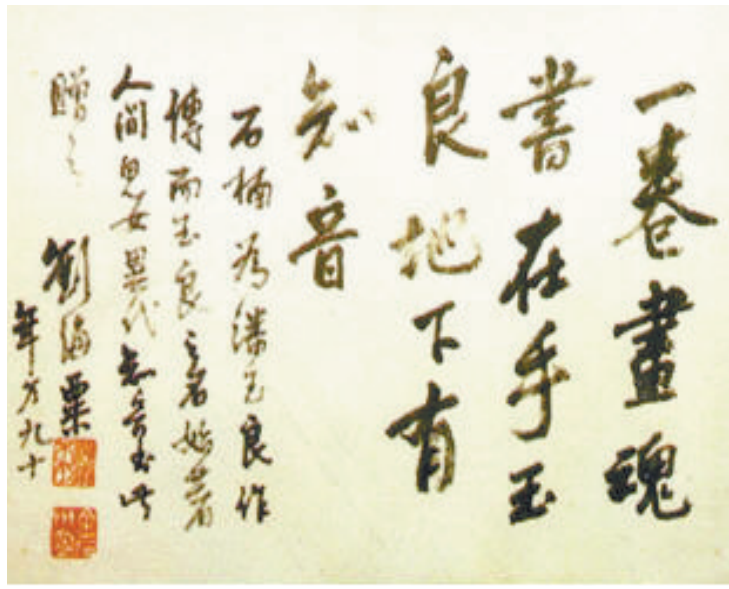 一卷畫魂
書在手玉
良地下有
知音
石楠為潘玉良作
傳而玉良之名始著
人間兒女異代知音書此
贈之
劉海粟
年方九十